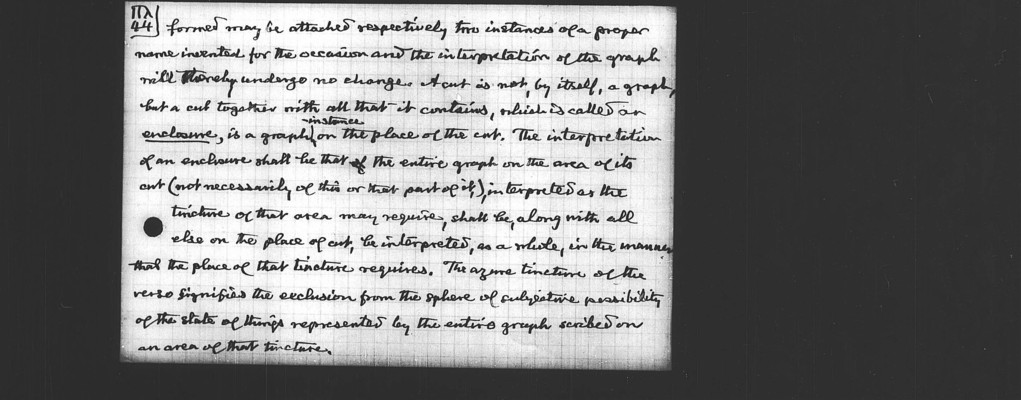 Πλ
44
formed may be attached respectively two instances of a proper
name invented for the occasion and the interpretation of the graph
will thereby undergo no change. A cut is not, by itself, a graph,
but a cut together with all that it contains, which is called an
-instance
enclosure, is a graph on the place of the cut. The interpretation
of an enclosure shall be that of the entire graph on the area of its
cut (not necessarily of this or that part of it,) interpreted as the
tincture of that area may require, shall be, along with all
else on the place of cut, be interpreted, as a whole, in the manner
that the place of that tincture requires. The azure tincture of the
verso signifies the exclusion from the sphere of subjective possibility
of the state of things represented by the entire graph scribed on
an area of that tincture.